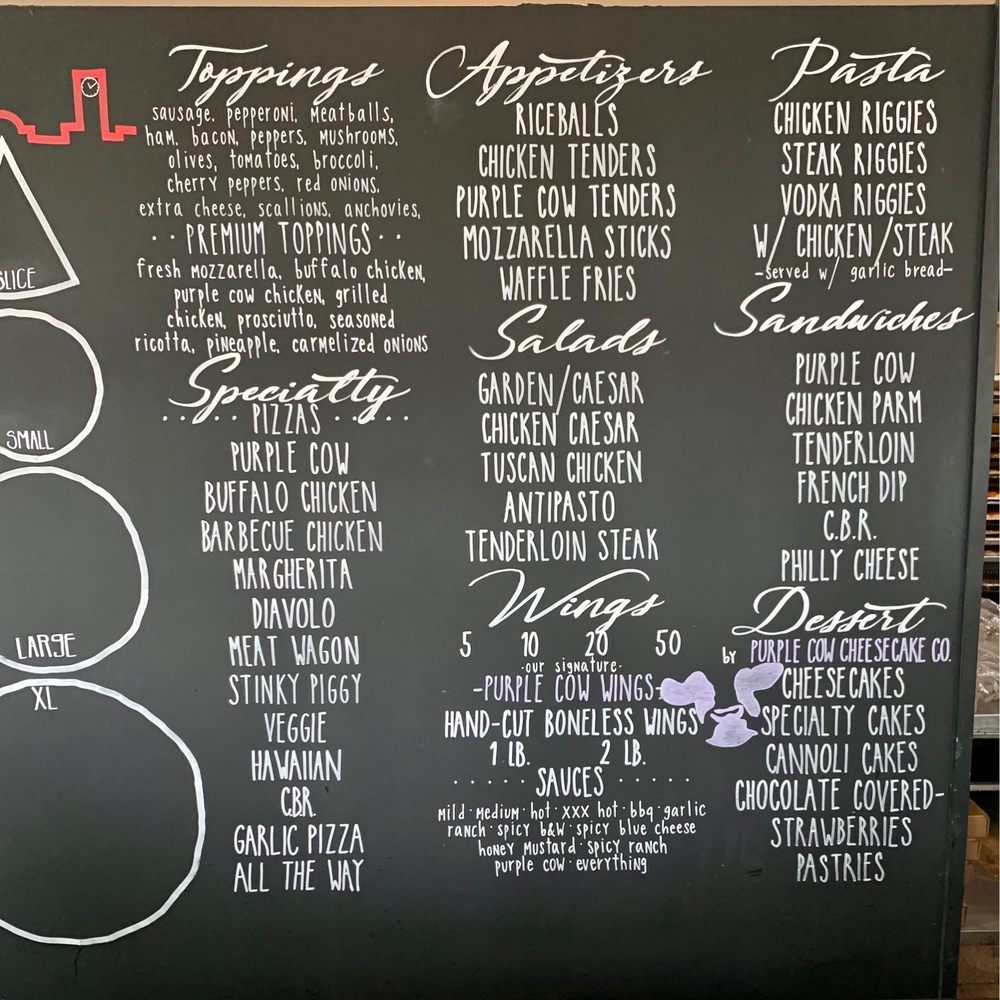 SLICE
SMALL
LARGE
XL
Toppings
sausage, pepperoni, meatballs,
ham, bacon, peppers, mushrooms,
olives, tomatoes, broccoli,
cherry peppers, red onions,
extra cheese, scallions, anchovies,
·· PREMIUM TOPPINGS ··
fresh mozzarella, buffalo chicken,
purple cow chicken, grilled
chicken, prosciutto, seasoned
ricotta, pineapple, carmelized onions
Specialty
..... PIZZAS .....
PURPLE COW
BUFFALO CHICKEN
BARBECUE CHICKEN
MARGHERITA
DIAVOLO
MEAT WAGON
STINKY PIGGY
VEGGIE
HAWAIIAN
CBR
GARLIC PIZZA
ALL THE WAY
Appetizers
RICEBALLS
CHICKEN TENDERS
PURPLE COW TENDERS
MOZZARELLA STICKS
WAFFLE FRIES
Salads
GARDEN/CAESAR
CHICKEN CAESAR
TUSCAN CHICKEN
ANTIPASTO
TENDERLOIN STEAK
Wings
5 10 20 50
-our signature-
-PURPLE COW WINGS-
HAND-CUT BONELESS WINGS
1 LB. 2 LB.
······ SAUCES ······
mild · medium · hot · xxx hot · bbq · garlic
ranch · spicy b&w · spicy blue cheese
honey mustard · spicy ranch
purple cow · everything
Pasta
CHICKEN RIGGIES
STEAK RIGGIES
VODKA RIGGIES
W/ CHICKEN/STEAK
-served w/ garlic bread-
Sandwiches
PURPLE COW
CHICKEN PARM
TENDERLOIN
FRENCH DIP
C.B.R.
PHILLY CHEESE
Dessert
by PURPLE COW CHEESECAKE CO.
CHEESECAKES
SPECIALTY CAKES
CANNOLI CAKES
CHOCOLATE COVERED-
STRAWBERRIES
PASTRIES